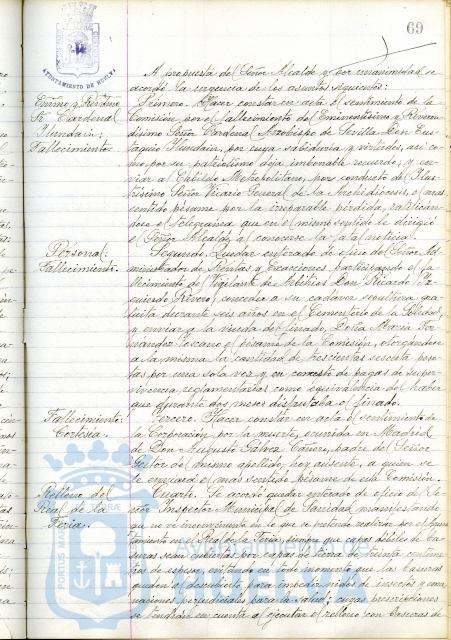 69
AYUNTAMIENTO DE HUELVA
A propuesta del Señor Alcalde y por unanimidad se
acordó la urgencia de los asuntos siguientes:
Emmo y Rvdmo
Sr Cardenal
Ylundain:
Fallecimiento
Primero. Hacer constar en acta el sentimiento de la
Comisión por el fallecimiento del Eminentísimo y Reveren
dísimo Señor Cardenal Arzobispo de Sevilla Don Eus
taquio Ylundain, por cuya sabiduría y virtudes, así co
mo por su patriotismo deja imborrable recuerdo; y en
viar al Cabildo Metropolitano, por conducto del Ilus
trísimo Señor Vicario General de la Archidiócesis, el mas
sentido pésame por la irreparable pérdida, ratifican
dose el telegrama que en el mismo sentido le dirigió
el Señor Alcalde al conocerse la fatal noticia.
Personal:
Fallecimiento.
Segundo. Quedar enterado de oficio del Señor Ad
ministrador de Rentas y Exacciones participando el fa
llecimiento del Vigilante de Arbitrios Don Ricardo Iz
quierdo Rivero; conceder a su cadaver sepultura gra
tuita durante seis años en el Cementerio de la Soledad,
y enviar a la viuda del finado, Doña María Fer
nandez Toscano el pésame de la Comisión, otorgandose
a la misma la cantidad de trescientas sesenta pese
tas por una sola vez y en concepto de pagas de super-
vivencia reglamentarias como equivalencia del haber
que durante dos meses disfrutaba el finado.
Fallecimiento:
Cortesía.
Tercero. Hacer constar en acta el sentimiento de
la Corporación por la muerte, ocurrida en Madrid
de Don Augusto Galvez Cañero, padre del Señor
Gestor del mismo apellido, hoy ausente, a quien se
le enviará el mas sentido pésame de esta Comisión.
Relleno del
Real de la
Feria.
Cuarto. Se acordó quedar enterado de oficio del Se
ñor Inspector Municipal de Sanidad manifestando
que no ve inconveniente en lo que se pretende realizar por el Ayun
tamiento en el Real de la Feria, siempre que capas dobles de ba
suras sean cubiertas por capas de tierra de treinta centime
tros de espesor, evitando en todo momento que las basuras
queden al descubierto para impedir nidos de insectos y ema
naciones perjudiciales para la salud; cuyas prescripciones
se tendrán en cuenta al ejecutar el relleno con basuras de
PORTUS MARIS